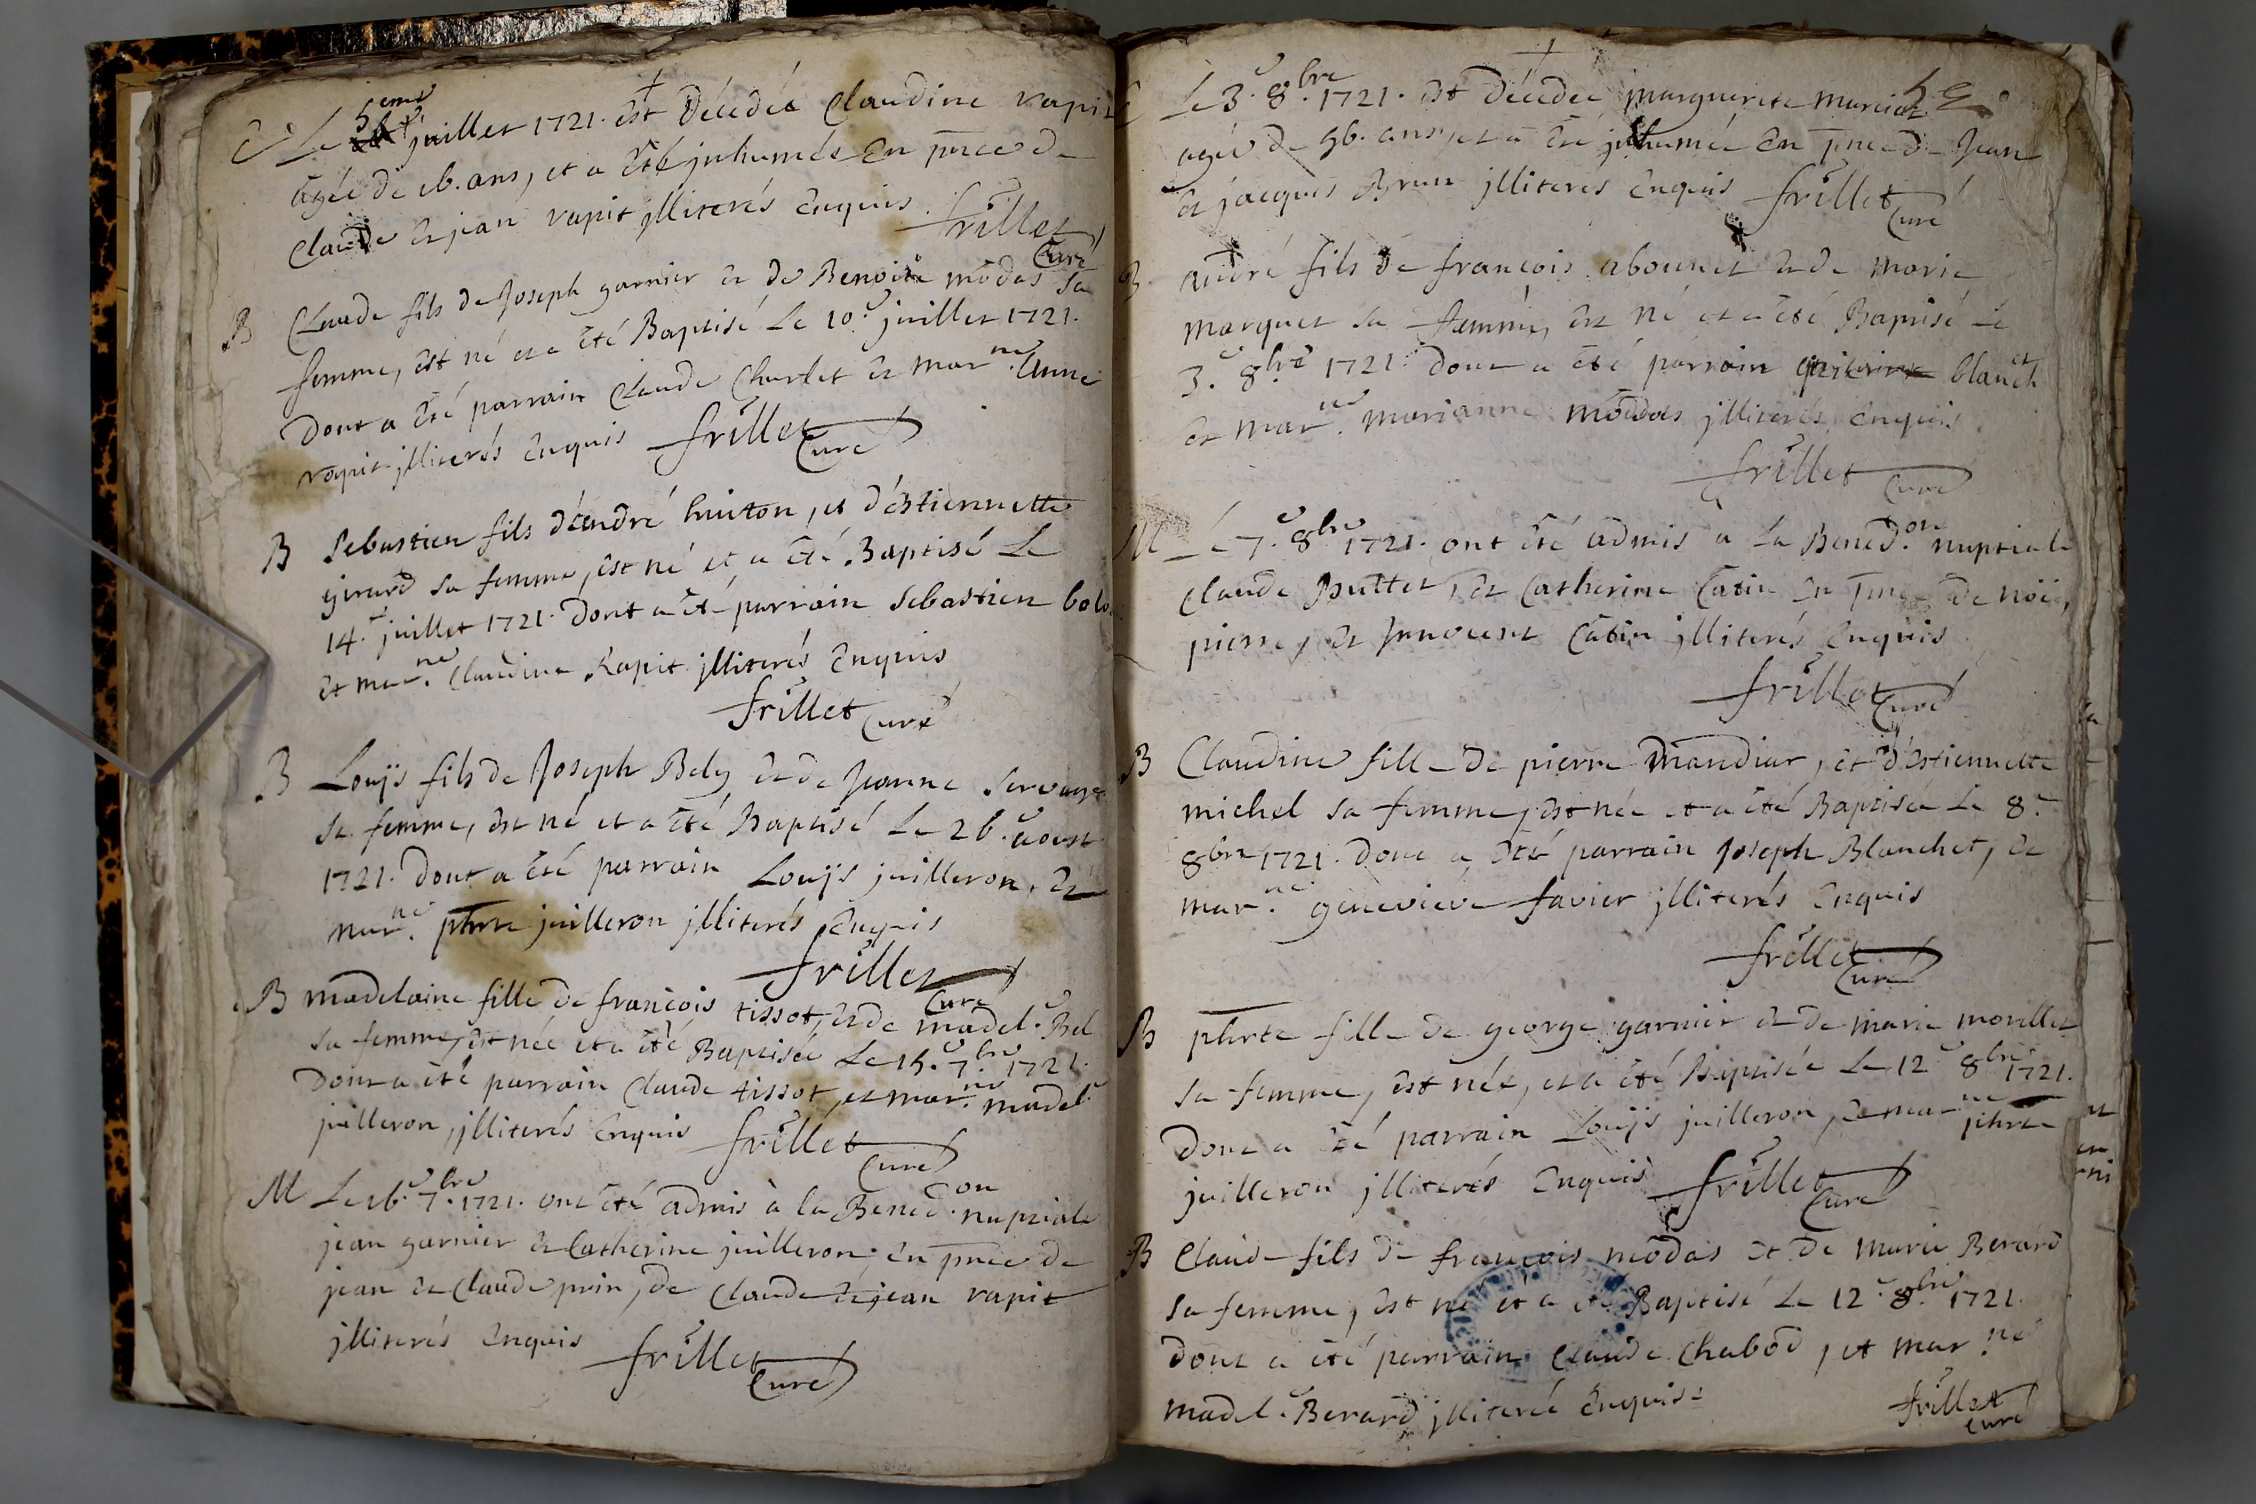 Le 5eme juillet 1721. est décédée Claudine rapit
agée de 16. ans, et a été jnhumée en pnce de
Claude et jean rapit jlliterés enquis. frillet
Curé
B Claude fils de Joseph garnier et de Benoite mõdas sa
femme, est né et a été Baptisé Le 10.e juillet 1721.
Dont a été parrain Claude Charlet et marne. Anne
rapit jlliterés enquis frillet Curé
B Sebastien fils d'andré huiton, et d'estiennette
girard sa femme, est né et a été Baptisé Le
14.e juillet 1721. Dont a été parrain Sebastien
et marne. Claudine Rapit jlliterés enquis
frillet Curé
B Louÿs fils de Joseph Bely et de Jeanne
sa femme, est né et a été Baptisé Le 26.e aoust
1721. Dont a été parrain Louÿs juilleron, et
marne. phrte juilleron jlliterés enquis
frillet
Curé
B madelaine fille de françois tissot, et de madel.e Bel
sa femme, est née et a été Baptisée Le 15.e 7.bre 1721.
Dont a été parrain Claude tissot, et marne. madel.e
juilleron, jlliterés enquis frillet Curé
M Le 16.e 7.bre 1721. ont été admis à la Bened.on nuptiale
jean garnier et Catherine juilleron, en pnce de
jean et Claude prin, de Claude et jean rapit
jlliterés enquis frillet
Curé
Le 3.e 8.bre 1721. est décédée marguerite 52
agée de 56. ans, et a été jnhumée en pnce de Jean
et jacques Brun jlliterés enquis frillet
Curé
B. andré fils de françois abounet et de marie
marquet sa femme, est né et a été Baptisé Le
3.e 8.bre 1721. Dont a été parrain blanch.et
et marne. marianne mõdas jlliterés enquis
frillet
Curé
M Le 7.e 8.bre 1721. ont été admis à la Bened.on nuptiale
Claude Puttet, et Catherine Catin en pnce de noë,
pierre, et Jnnocent Catin jlliterés enquis
frillet
Curé
B Claudine fille de pierre mandiar, et d'estiennette
michel sa femme, est née et a été Baptisée Le 8.e
8bre 1721. Dont a été parrain Joseph Blanchet, et
mar.ne genevieve favier jlliterés enquis
frillet
Curé
B phrte fille de george garnier et de marie morillet
sa femme, est née, et a été Baptisée Le 12e 8bre 1721.
Dont a été parrain Louÿs juilleron, et marne phrte
juilleron jlliterés enquis frillet
Curé
B Claude fils de françois mõdas et de marie Berard
sa femme, est né et a été Baptisé Le 12.e 8.bre 1721.
Dont a été parrain Claude Chabod, et mar.ne
madel.e Berard jlliterés enquis.
frillet
Curé